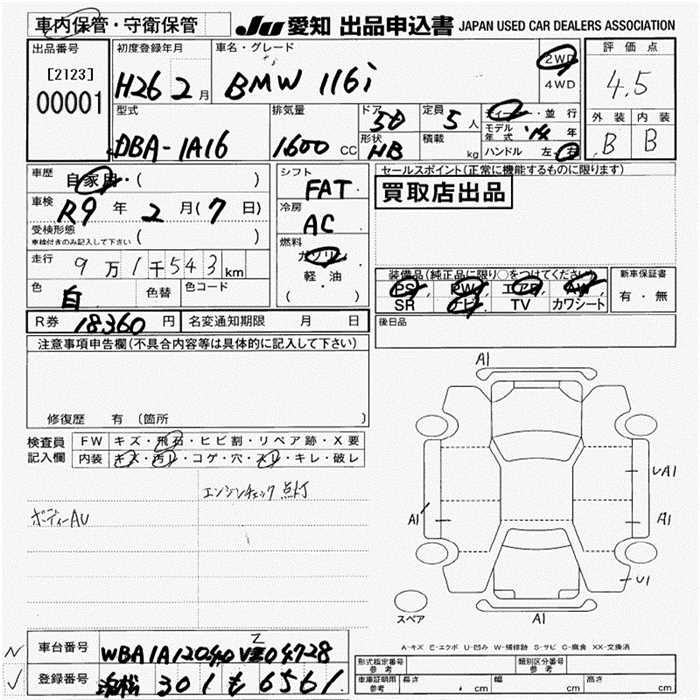 車内保管・守衛保管
JU 愛知 出品申込書 JAPAN USED CAR DEALERS ASSOCIATION
出品番号
[2123]
00001
初度登録年月
H26 2月
車名・グレード
BMW 116i
2WD
4WD
評価点
4.5
外装 内装
B B
型式
DBA-1A16
排気量
1600 CC
ドア 5D
形状 HB
定員 5人
積載 kg
ディーラー・並行
モデル年式 '14年
ハンドル 左・右
車歴 自家用・( )
車検 R9年2月(7日)
受検形態
車検付きのみ記入して下さい ( )
走行 9万1千543km
色 白 色替 色コード
シフト
FAT
冷房
AC
燃料
ガソリン
軽・油
( ・ )
セールスポイント(正常に機能するものに限ります)
買取店出品
装備品(純正品に限り○をつけてください)
PS, PW, エアB, AW
SR ナビ, TV カワシート
新車保証書
有・無
R券 18360円 名変通知期限 月 日
後日品
注意事項申告欄(不具合内容等は具体的に記入して下さい)
修復歴 有 (箇所 )
検査員
記入欄
FW キズ・飛石・ヒビ割・リペア跡・X要
内装 キズ・汚レ・コゲ・穴・スレ・キレ・破レ
エンジンチェック 点灯
ボディーAU
A1
UA1
A1
A1
U1
A1
スペア
A-キズ E-エクボ U-凹み W-補修跡 S-サビ C-腐食 XX-交換済
N
車台番号 WBA1A12040VZ04728
Z
✓
登録番号 浜松 301 も 6561
形式指定番号
参考
類別区分番号
参考
車庫証明用
参考
長さ cm 幅 cm 高さ cm